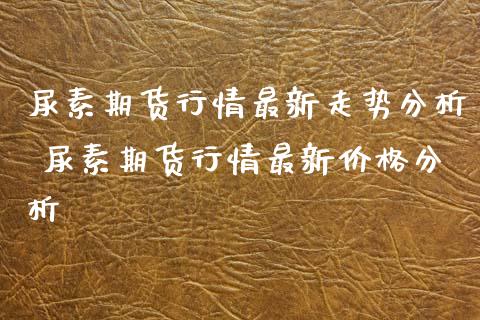 尿素期货行情最新走势分析
尿素期货行情最新价格分
析